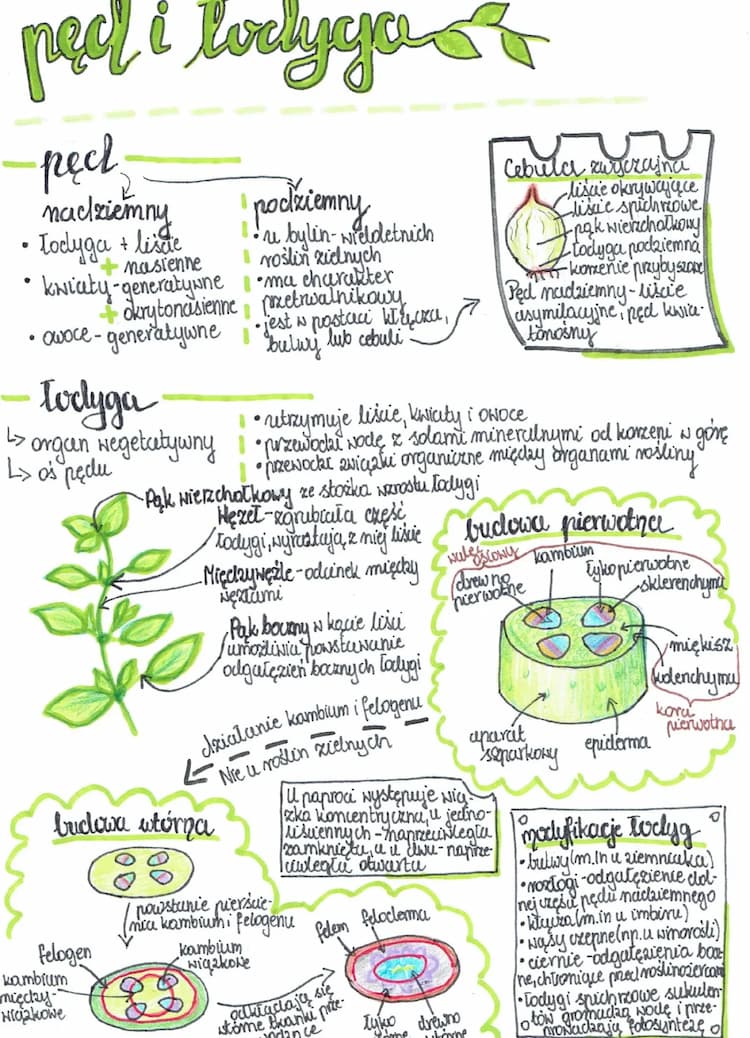 pęd i łodyga
pęd
nadziemny
• łodyga + liście
+ nasienne
• kwiaty - generatywne
+ okrytonasienne
• owoce - generatywne
podziemny
• u bylin - wieloletnich
roślin zielnych
• ma charakter
przetrwalnikowy
• jest w postaci kłącza,
bulwy lub cebuli
Cebula zwyczajna
liście okrywające
liście spichrzowe
pąk wierzchołkowy
łodyga podziemna
korzenie przybyszowe
Pęd nadziemny - liście
asymilacyjne, pęd kwia-
tonośny
łodyga
↳ organ wegetatywny
↳ oś pędu
• utrzymuje liście, kwiaty i owoce
• przewodzi wodę z solami mineralnymi od korzeni w górę
• przewodzi związki organiczne między organami rośliny
Pąk wierzchołkowy ze stożka wzrostu łodygi
Węzeł - zgrubiała część
łodygi, wyrastają z niej liście
Międzywęźle - odcinek między
węzłami
Pąk boczny w kącie liści
umożliwia powstawanie
odgałęzień bocznych łodygi
budowa pierwotna
walec osiowy
kambium
drewno
pierwotne
łyko pierwotne
sklerenchyma
miękisz
kolenchyma
kora
pierwotna
aparat
szparkowy
epiderma
działanie kambium i felogenu
Nie u roślin zielnych
budowa wtórna
powstanie pierście-
nia kambium i felogenu
felogen
kambium
wiązkowe
kambium
między-
wiązkowe
odkładają się
wtórne tkanki prze-
wodzące
felem
feloderma
łyko
wtórne
drewno
wtórne
U paproci występuje wią-
zka koncentryczna, u jedno-
liściennych - naprzeciwległa
zamknięta, a u dwu - naprze-
ciwległa otwarta
modyfikacje łodyg
• bulwy (m.in u ziemniaka)
• rozłogi - odgałęzienie dol-
nej części pędu nadziemnego
• kłącza (m.in u imbiru)
• wąsy czepne (np. u winorośli)
• ciernie - odgałęzienia bocz
ne, chroniące przed roślinożercami
• łodygi spichrzowe sukulen-
tów gromadzą wodę i prze-
prowadzają fotosyntezę